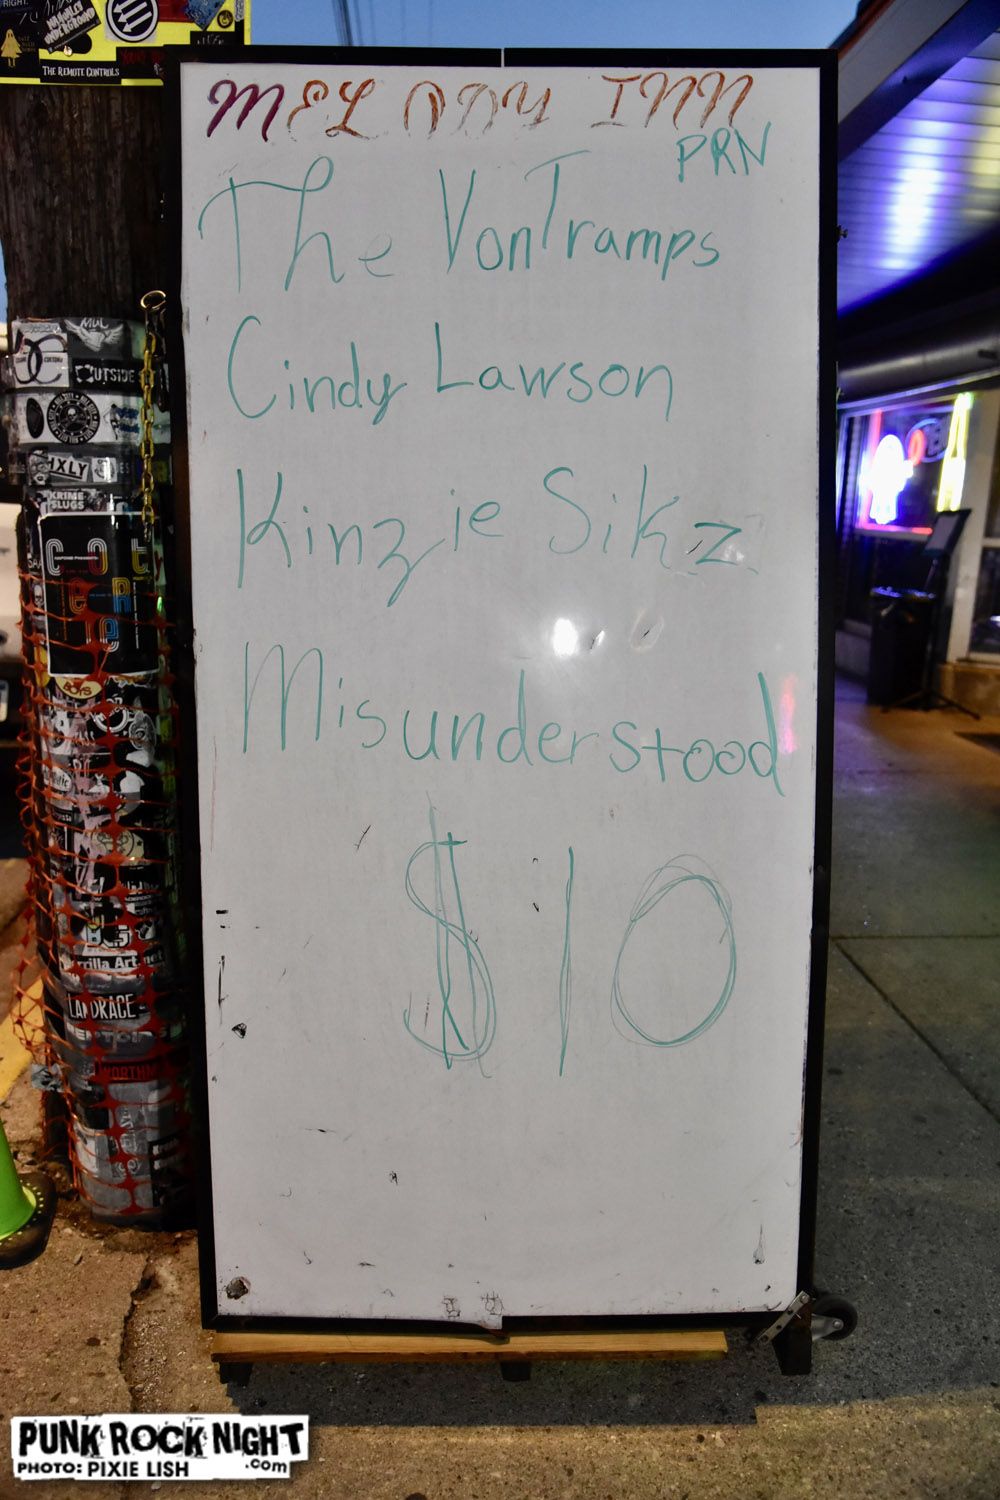 MELODY INN
PRN
The VonTramps
Cindy Lawson
Kinzie Sikz
Misunderstood
$10
THE REMOTE CONTROLS
OUTSIDE
HXLY
KRIME
SLUGS
COterie
BOYS
LANDRACE
PUNK ROCK NIGHT
.com
PHOTO: PIXIE LISH